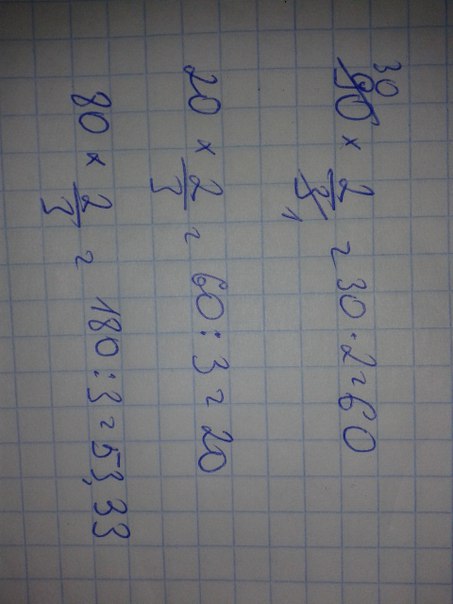 30
90 × 2/3 1 = 30 · 2 = 60
20 × 2/3 = 60 : 3 = 20
80 × 2/3 = 180 : 3 = 53,33